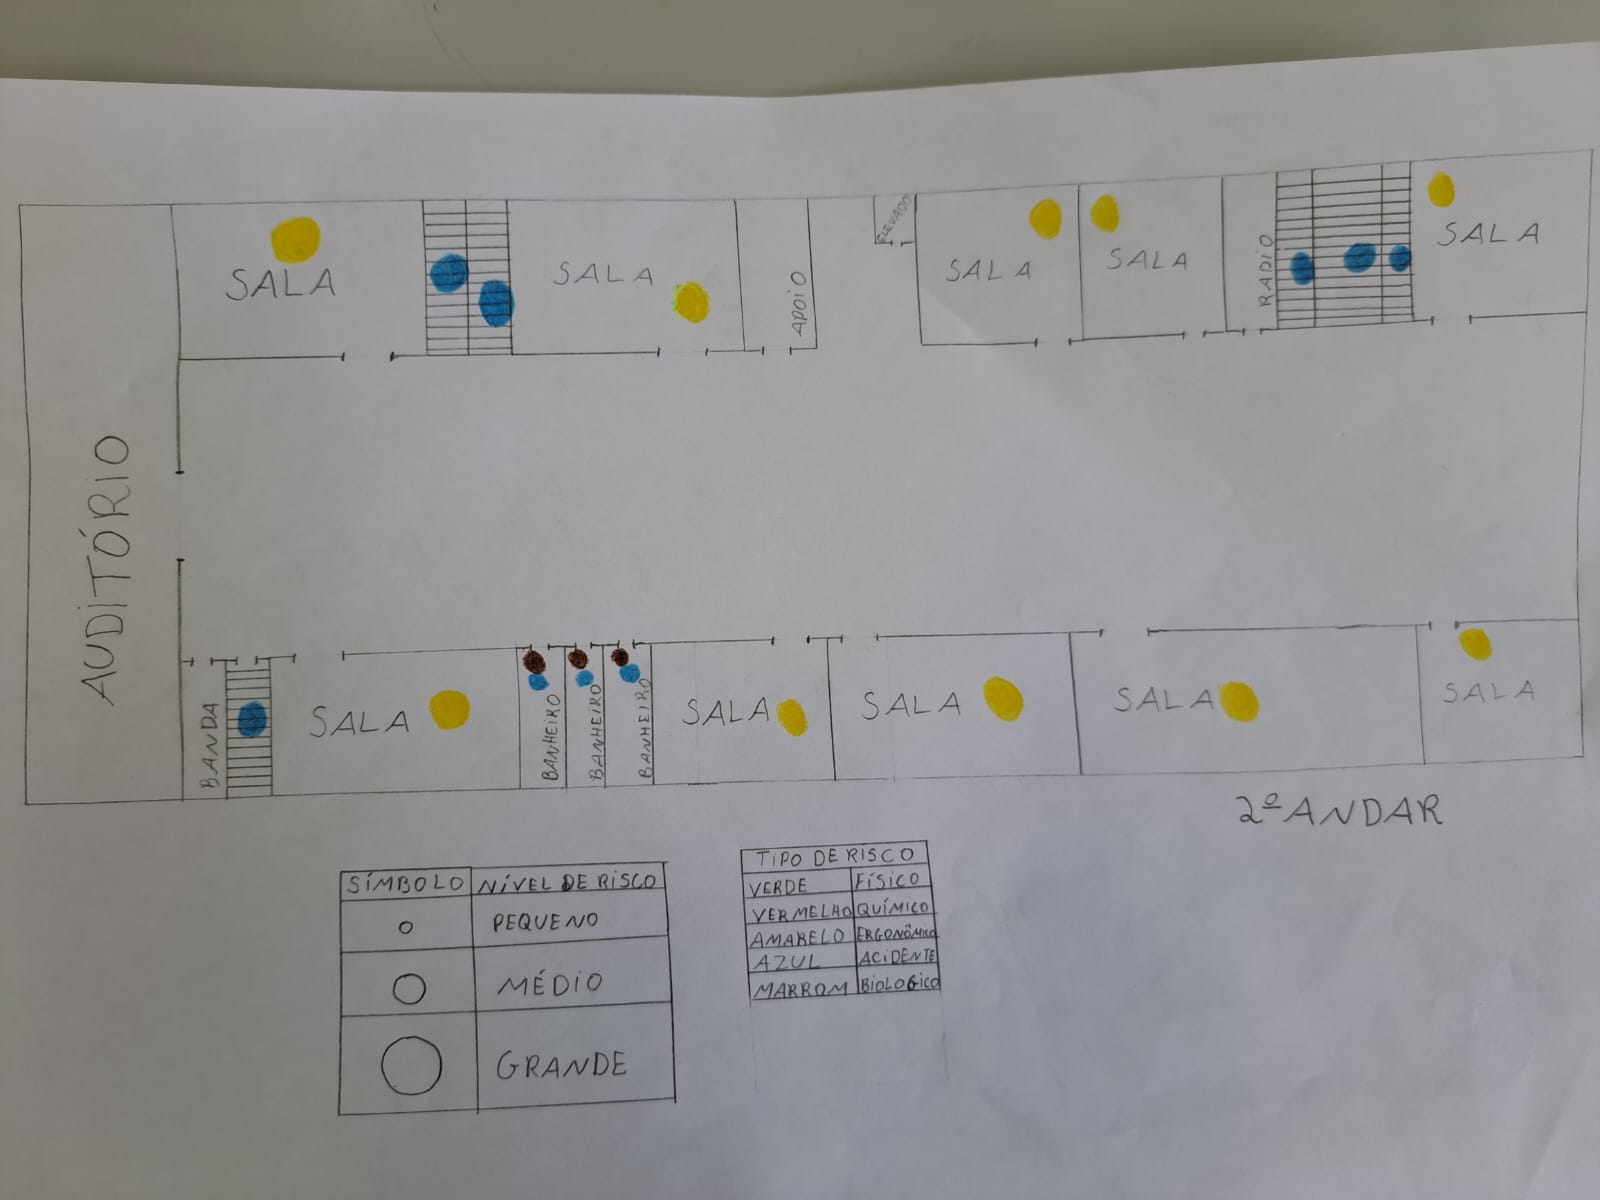 AUDITÓRIO
SALA
SALA
APOIO
ELEVADO
SALA
SALA
RADIO
SALA
BANDA
SALA
BANHEIRO
BANHEIRO
BANHEIRO
SALA
SALA
SALA
SALA
2º ANDAR
SÍMBOLO NÍVEL DE RISCO
PEQUENO
MÉDIO
GRANDE
TIPO DE RISCO
VERDE FÍSICO
VERMELHO QUÍMICO
AMARELO ERGONÔMICO
AZUL ACIDENTE
MARROM BIOLOGICO